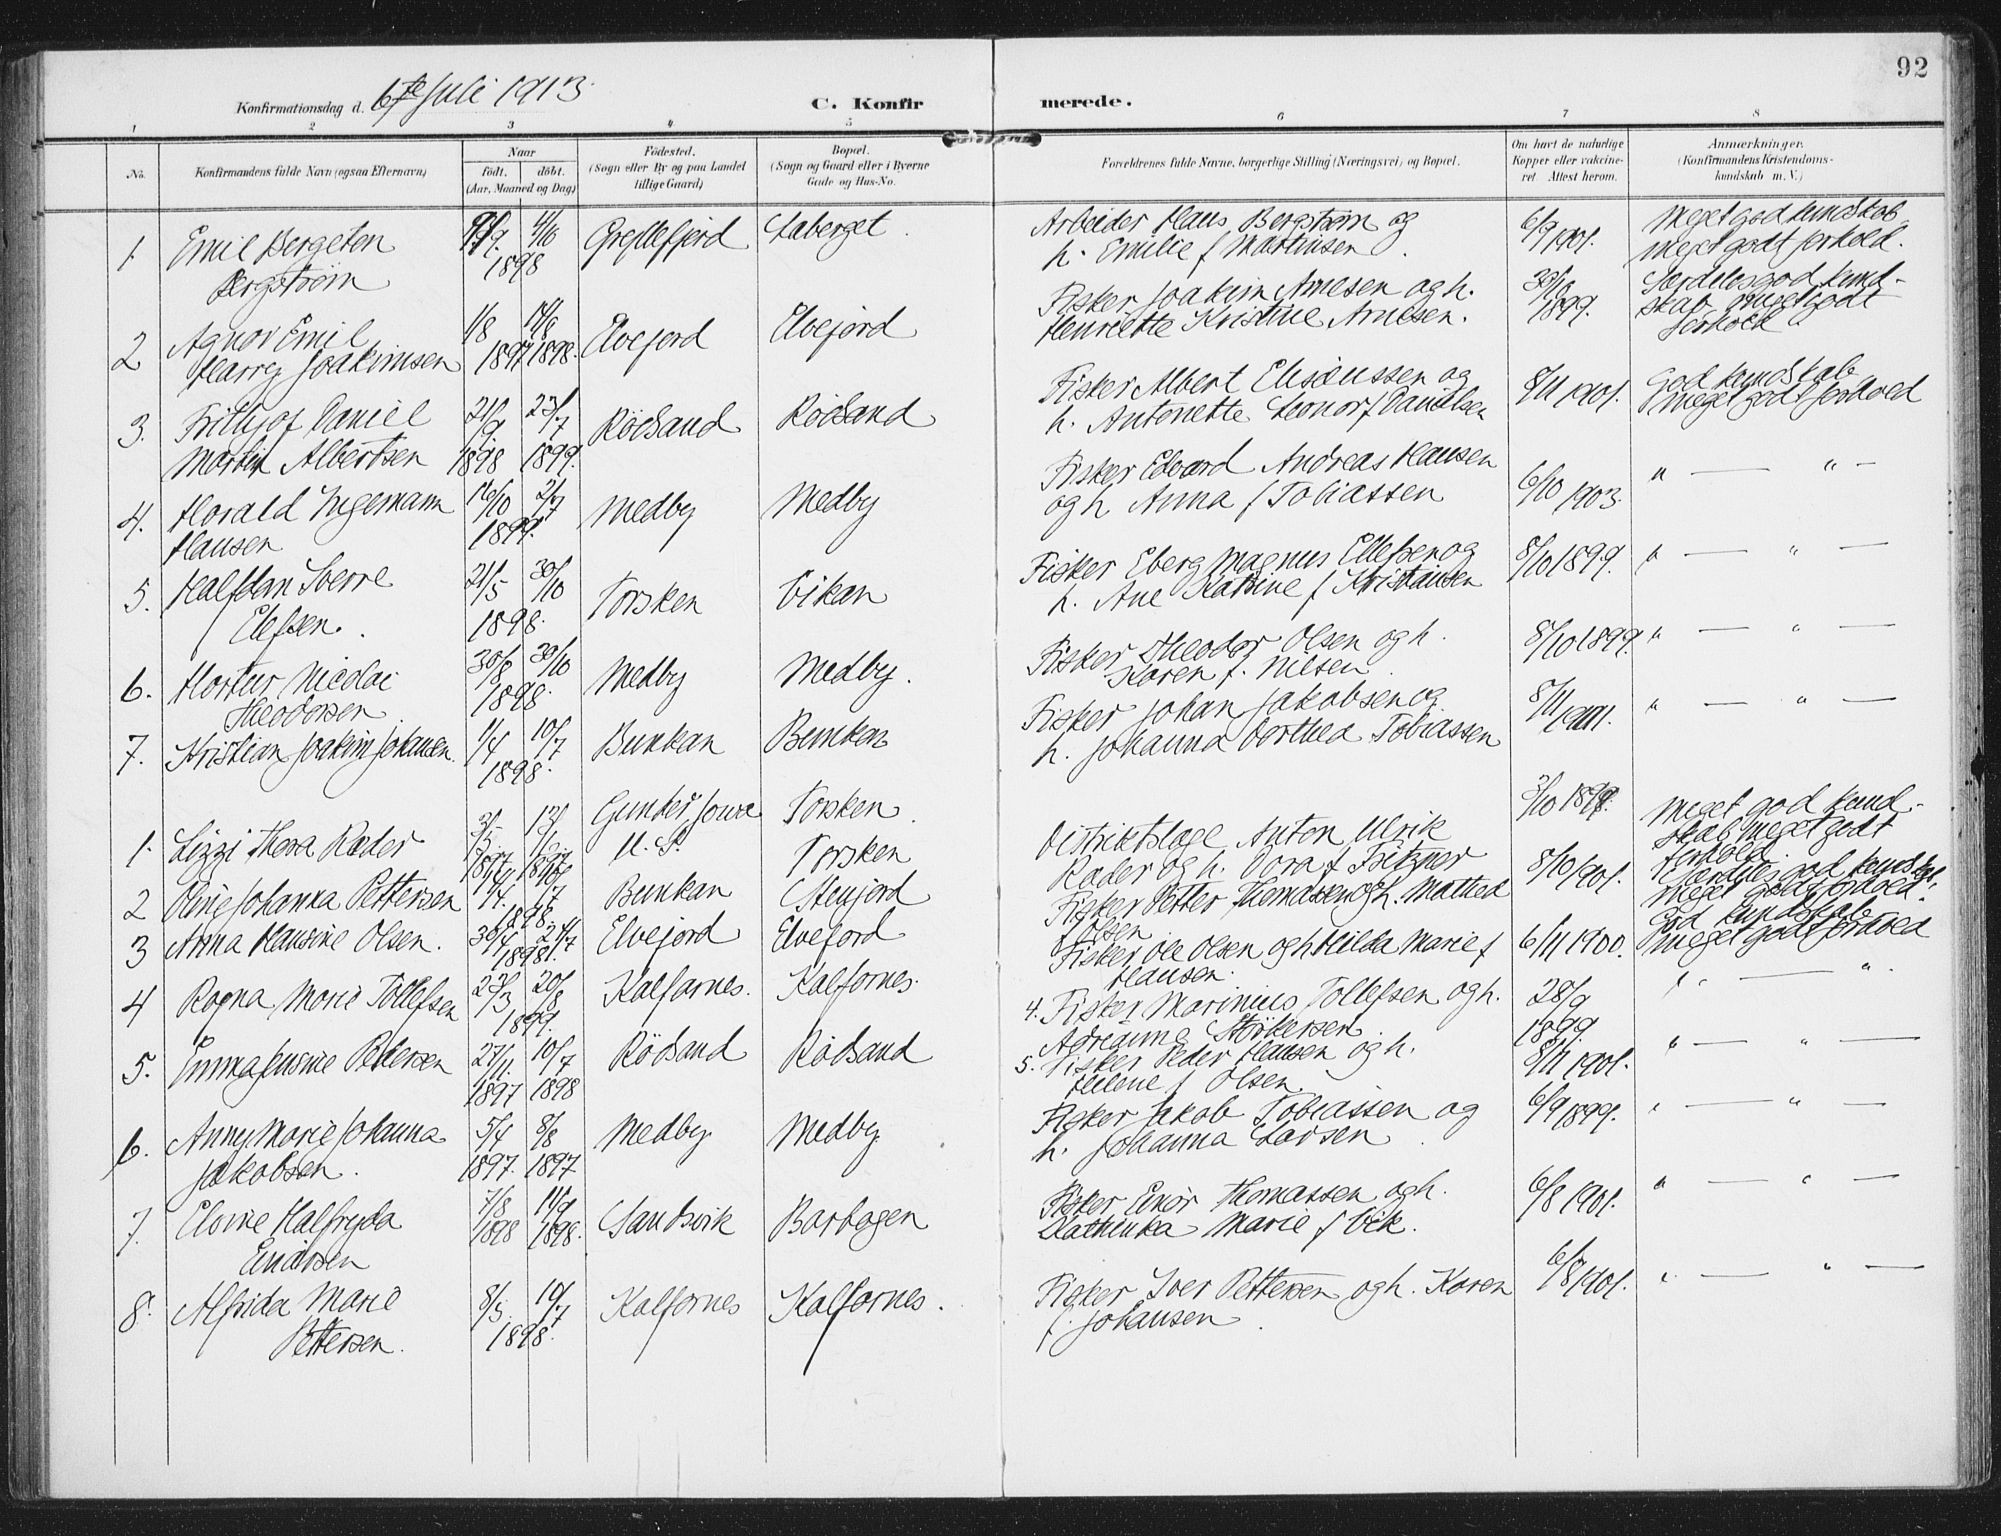 92
Konfirmationsdag d. 6te Juli 1913.
C. Konfirmerede.
1 2 3 4 5 6 7 8
No. Konfirmandens fulde Navn (ogsaa Efternavn) Naar født. døbt. (Aar, Maaned og Dag) Fødested. (Sogn eller By og paa Landet tillige Gaard) Bopæl. (Sogn og Gaard eller i Byerne Gade og Hus-No. Forældrenes fulde Navne, borgerlige Stilling (Næringsvei) og Bopæl. Om havt de naturlige Kopper eller vakcineret. Attest herom. Anmerkninger. (Konfirmandens Kristendomskundskab m. V.)
1. Emil Bergeton Bergstrøm 4/10 1898 Gryllefjord Laberget. Arbeider Hans Bergstrøm og h. Emilie f Martinsen. 6/9 1901. Meget god kundskab meget godt forhold.
2 Agnor Emil Harry Joakimsen 1/8 1897 14/8 1898. Elvejord Elvejord Fisker Joakim Arnesen og h. Henriette Kristine Arnesen. 30/9 1899. Særdeles god kundskab meget godt forhold
3. Frithjof Daniel Martin Albertsen 21/9 1898 23/7 1899. Rödsand Rödsand Fisker Albert Elisæussen og h. Antonette Leonor f Danielsen 8/11 1901. God kundskab meget godt forhold
4. Harald Ingemann Hansen 16/10 2/7 1899. Medby Medby Fisker Edvard Andreas Hansen og h Anna f Tobiassen 6/10 1903. " — " —
5. Halfdan Sverre Elefsen. 21/5 30/10 1898. Torsken Vikan Fisker Eberg Magnus Ellefsen og h. Ane Katrine f Kristiansen 8/10 1899. " — " —
6. Hartur Nicolai Theodorsen 30/8 30/10 1898. Medby Medby. Fisker Theodor Olsen og h. Karen f. Nilsen. 8/10 1899. " — " —
7. Kristian Joakim Johansen. 1/4 10/7 1898. Bunkan Bunkan Fisker Johan Jakobsen og h. Johanna Dorthea Tobiassen 8/11 1901. " — " —
1. Lizzi Thora Rader 3/5 1897 13/ 1897 U. S. Torsken. Distriktslæge Anton Ulrik Rader og h. Dora f Fritzner 3/10 1898. Meget god kundskab meget godt forhold.
2 Oline Johanna Pettersen 1/4. 10/7 1898. Bunkan Torsken Stenjord Fisker Petter Thomassen og h. Mathea Olsen 8/10 1901. Særdeles god kundskab. meget godt forhold.
3 Anna Hansine Olsen. 30/4 24/7 1898. Elvejord Elvejord Fisker Ole Olsen og h Hilda Marie f Hansen. 6/11 1900. God kundskab meget godt forhold
4 Ragna Marie Tollefsen 23/3 20/8 1899. Kalfarnes. Kalfarnes. 4. Fisker Marinius Tollefsen og h. Adrianne Störkersen. 28/9 1899. " — "
5. Emma Jusine Pedersen 27/11. 1897 10/7 1898 Rödsand Rödsand 5. Fisker Peder Hansen og h. Helene f Olsen 8/11 1901. " — " —
6. Anny Marie Johanna Jakobsen. 5/4 1897. 8/8 1897 Medby. Medby. Fisker Jakob Tobiassen og h. Johanna Larsen. 6/9 1899. " — " —
7. Elvine Halfryda Einarsen 7/8 1898 11/9 1898. Sandvik Barbogen Fisker Einar Thomassen og h. Kathinka Marie f Vik. 6/8 1901. " — " —
8. Alfrida Marie Pettersen. 8/5. 10/7 1898. Kalfarnes Kalfarnes. Fisker Iver Pettersen og h. Karen f. Johansen. 6/8 1901. " — " —